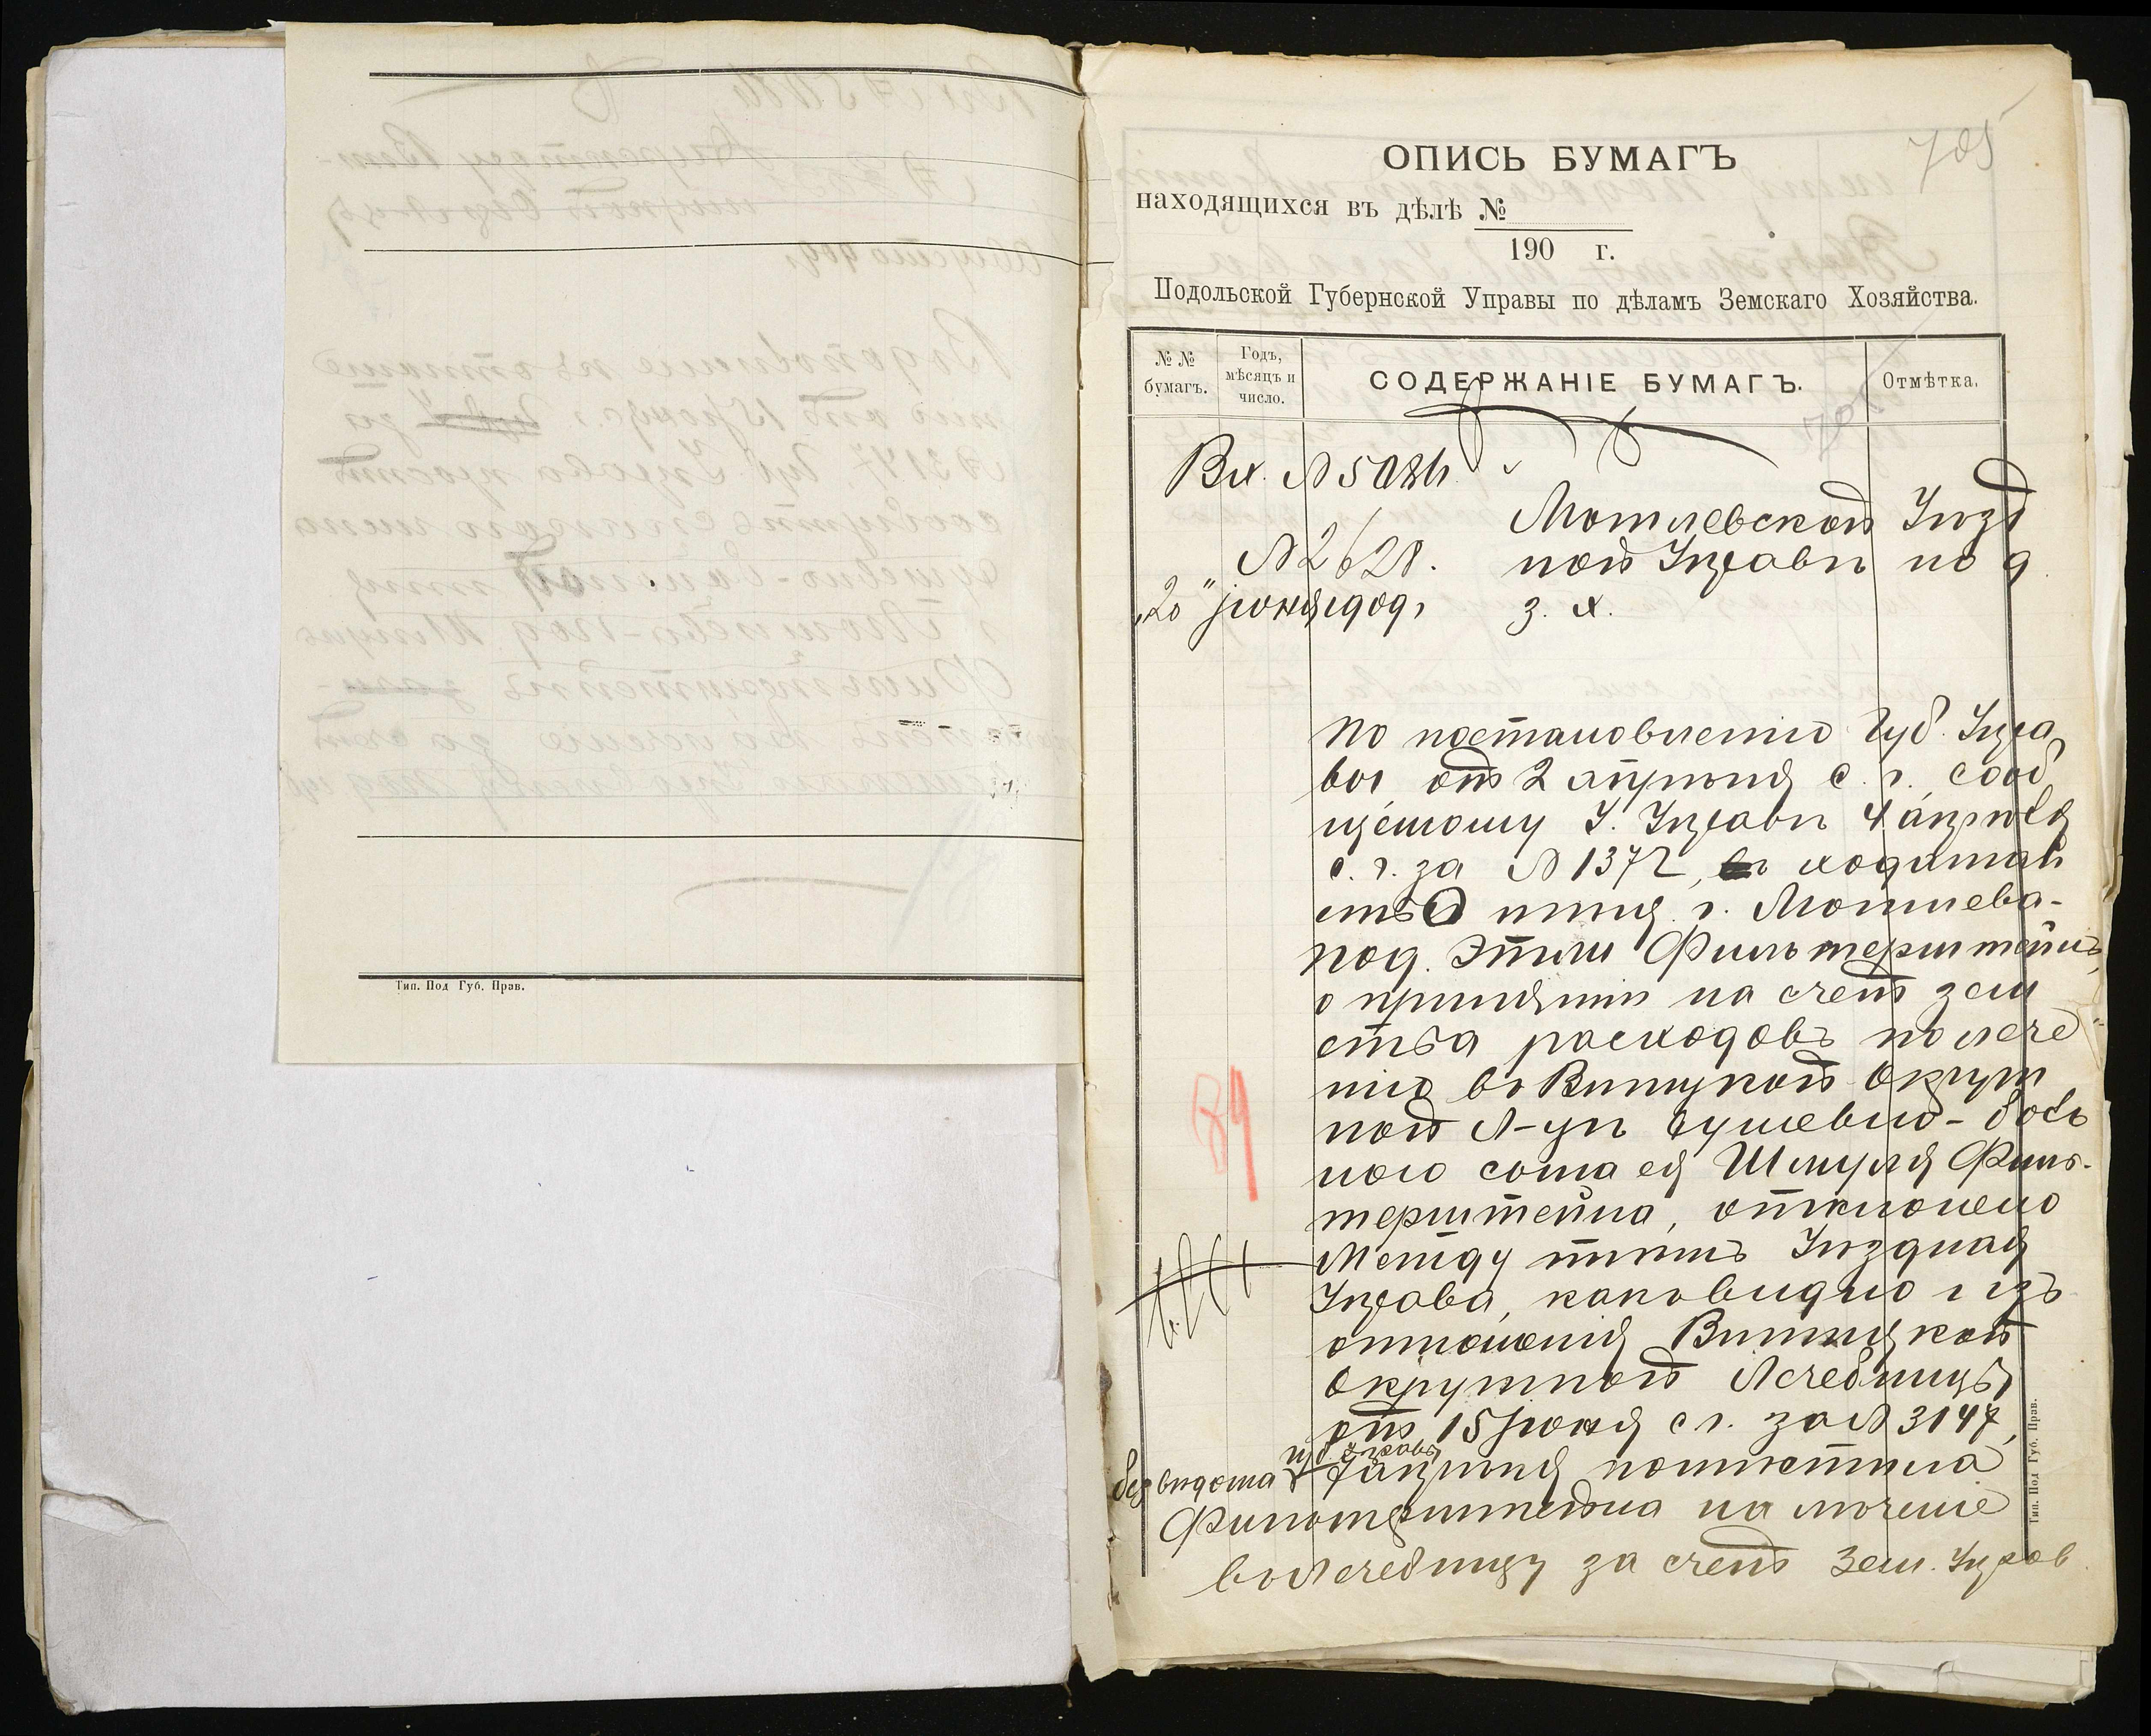 Тип. Под Губ. Прав.
705
ОПИСЬ БУМАГЪ
находящихся въ дѣлѣ №
190 г.
Подольской Губернской Управы по дѣламъ Земскаго Хозяйства.
№№ бумагъ.
Годъ, мѣсяцъ и число.
СОДЕРЖАНІЕ БУМАГЪ.
Отмѣтка.
705
Вх. №
Могилевской Уѣзд
№ 2628.
ной Управѣ по д
„20" іюня 1909 г
з. х.
По постановленію Губ. Упра
вы отъ 2 апрѣля с. г., сооб
щенному У. Управѣ 4 апрѣля
с. г. за № 1372, ходатай
ство мѣщ. г. Могилева-
под. Этли Фильтерштейнъ,
о принятіи на счетъ зем
ства расходовъ по лече
нію въ Винницкой Окруж
ной Л-цѣ душевно-боль
ного сына ея Шмуля Филь-
терштейна, отклонено
Между тѣмъ Уѣздная
Управа, какъ видно изъ
отношенія Винницкой
Окружной Лечебницы
отъ 15 іюня с г. за № 3147,
Губ Управы
безъ вѣдома 7 апрѣля помѣстила
Фильтерштейна на леченіе
въ Лечебницу за счетъ Зем. Управ
89
Тип. Под Губ. Прав.